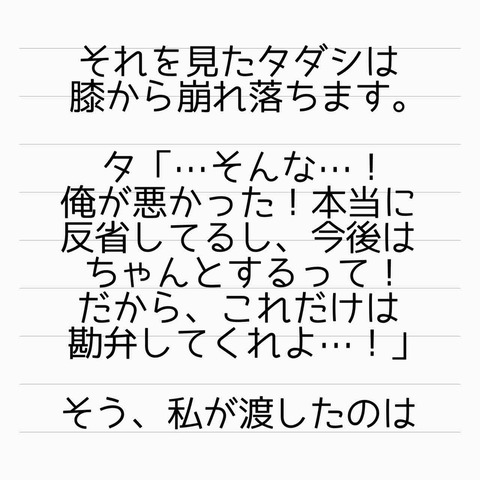 それを見たタダシは
膝から崩れ落ちます。
タ「…そんな…！
俺が悪かった！本当に
反省してるし、今後は
ちゃんとするって！
だから、これだけは
勘弁してくれよ…！」
そう、私が渡したのは